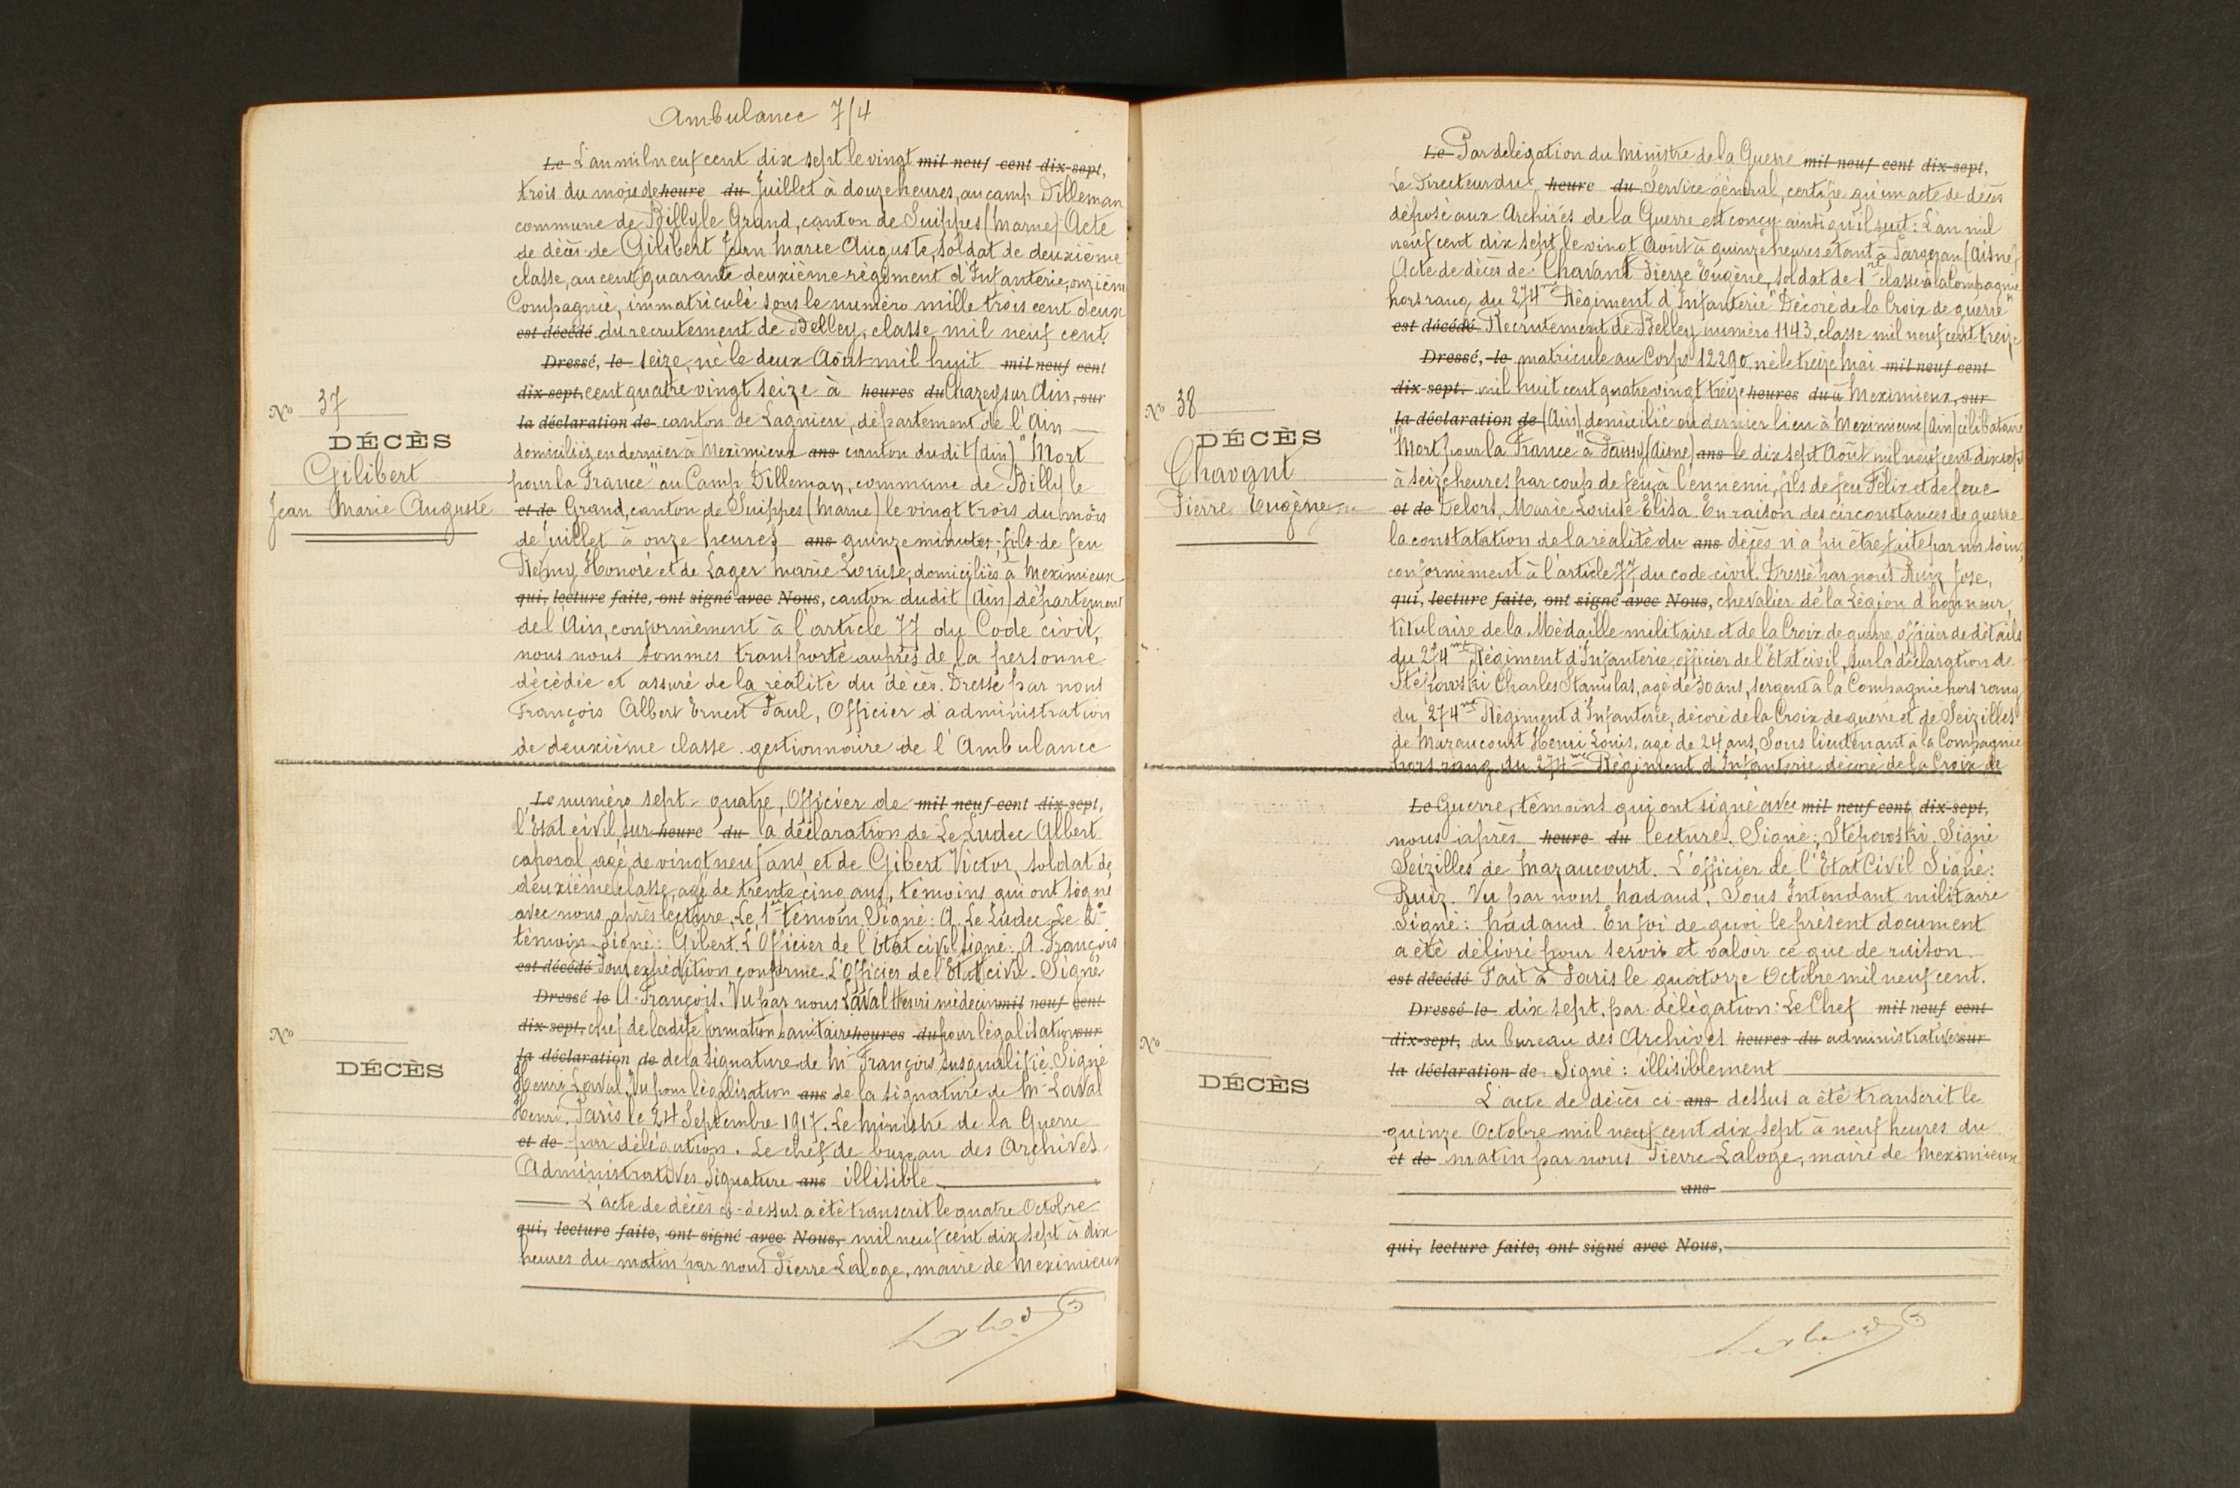 Ambulance 7/4
Le L'an mil neuf cent dix sept le vingt mil neuf cent dix-sept,
trois du mois de heure du Juillet à douze heures, au camp Dilleman
commune de Billy le Grand, canton de Suippes (Marne) Acte
de décès de Gilibert Jean Marie Auguste, soldat de deuxième
classe, au cent quarante deuxième régiment d'Infanterie, onzième
Compagnie, immatriculé sous le numéro mille trois cent deux
est décédé du recrutement de Belley, classe mil neuf cent
Dressé, le seize, né le deux Août mil huit mil neuf cent
dix-sept, cent quatre vingt seize à heures du Chazey sur Ain, sur
la déclaration de canton de Lagnieu, département de l'Ain
N° 37
DÉCÈS
Gilibert
Jean Marie Auguste
domicilié, en dernier à Meximieux ans canton dudit (Ain) "Mort
pour la France" au Camp Dilleman, commune de Billy le
et de Grand, canton de Suippes (Marne) le vingt trois du mois
de juillet à onze heures ans quinze minutes, fils de feu
Rémy Honoré et de Lager Marie Louise, domiciliés à Meximieux
qui, lecture faite, ont signé avec Nous, canton dudit (Ain) département
de l'Ain, conformément à l'article 77 du Code civil,
nous nous sommes transporté auprès de la personne
décédée et assuré de la réalité du décès. Dressé par nous
François Albert Ernest Paul, Officier d'administration
de deuxième classe gestionnaire de l'Ambulance
Le numéro sept-quatre, Officier de mil neuf cent dix-sept,
l'Etat civil, sur heure du la déclaration de Le Ludec Albert
caporal, agé de vingt neuf ans, et de Gibert Victor, soldat de
deuxième classe, agé de trente cinq ans, témoins qui ont signé
avec nous après lecture. Le 1er témoin Signé: A. Le Ludec Le 2e
témoin Signé: Gibert. L'Officier de l'Etat civil signé: A. François
est décédé Pour expédition conforme. L'Officier de l'Etat civil. Signé
Dressé le A. François. Vu par nous Laval Henri médecin mil neuf cent
dix-sept, chef de ladite formation sanitaire heures du pour légalisation sur
la déclaration de de la signature de Mr François susqualifié. Signé
N°
DÉCÈS
Henri Laval. Vu pour légalisation ans de la signature de Mr Laval
Henri. Paris le 24 Septembre 1917. Le Ministre de la Guerre
et de par délégation. Le chef de bureau des Archives
Administratives Signature ans illisible
L'acte de décès ci-dessus a été transcrit le quatre Octobre
qui, lecture faite, ont signé avec Nous, mil neuf cent dix sept à dix
heures du matin par nous Pierre Laloge, maire de Meximieux
Le Par délégation du Ministre de la Guerre mil neuf cent dix-sept,
Le Directeur du heure du Service général, certifie qu'un acte de décès
déposé aux Archives de la Guerre est conçu ainsi qu'il suit: L'an mil
neuf cent dix sept, le vingt Août à quinze heures étant à Pargnan (Aisne)
Acte de décès de Chavant Pierre Eugène, soldat de 1re classe à la Compagnie
hors rang du 274me Régiment d'Infanterie "Décoré de la Croix de guerre"
est décédé Recrutement de Belley numéro 1143, classe mil neuf cent treize
Dressé, le matricule au Corps 12290, né le treize Mai mil neuf cent
dix-sept. mil huit cent quatre vingt treize heures du à Meximieux, sur
la déclaration de (Ain) domicilié en dernier lieu à Meximieux (Ain) célibataire
N° 38
DÉCÈS
Chavant
Pierre Eugène
"Mort pour la France" à Paissy (Aisne) ans le dix sept Août mil neuf cent dix sept
à seize heures par coup de feu, à l'ennemi, fils de feu Félix et de feue
et de Delort, Marie Louise Elisa. En raison des circonstances de guerre
la constatation de la réalité du ans décès n'a pu être faite par nos soins,
conformément à l'article 77, du code civil. Dressé par nous Ruiz Jose,
qui, lecture faite, ont signé avec Nous, chevalier de la Légion d'honneur,
titulaire de la Médaille militaire et de la Croix de guerre, officier de détails
du 274me Régiment d'Infanterie, officier de l'Etat civil, sur la déclaration de
Stépowski Charles Stanislas, agé de 30 ans, sergent à la Compagnie hors rang
du 274me Régiment d'Infanterie, décoré de la Croix de guerre et de Seizilles
de Mazaucourt Henri Louis, agé de 24 ans, Sous lieutenant à la Compagnie
hors rang du 274me Régiment d'Infanterie décoré de la Croix de
Le Guerre, témoins qui ont signé avec mil neuf cent dix-sept,
nous après heure du lecture. Signé: Stépowski. Signé
Seizilles de Mazaucourt. L'officier de l'Etat Civil Signé:
Ruiz. Vu par nous Hadaud, Sous Intendant militaire
Signé: Hadaud. En foi de quoi le présent document
a été délivré pour servir et valoir ce que de raison
est décédé Fait à Paris le quatorze Octobre mil neuf cent.
Dressé le dix sept, par délégation: Le Chef mil neuf cent
dix-sept, du bureau des Archives heures du administratives sur
la déclaration de Signé: illisiblement
N°
DÉCÈS
L'acte de décès ci ans dessus a été transcrit le
quinze Octobre mil neuf cent dix sept à neuf heures du
et de matin par nous Pierre Laloge, maire de Meximieux
ans
qui, lecture faite, ont signé avec Nous,